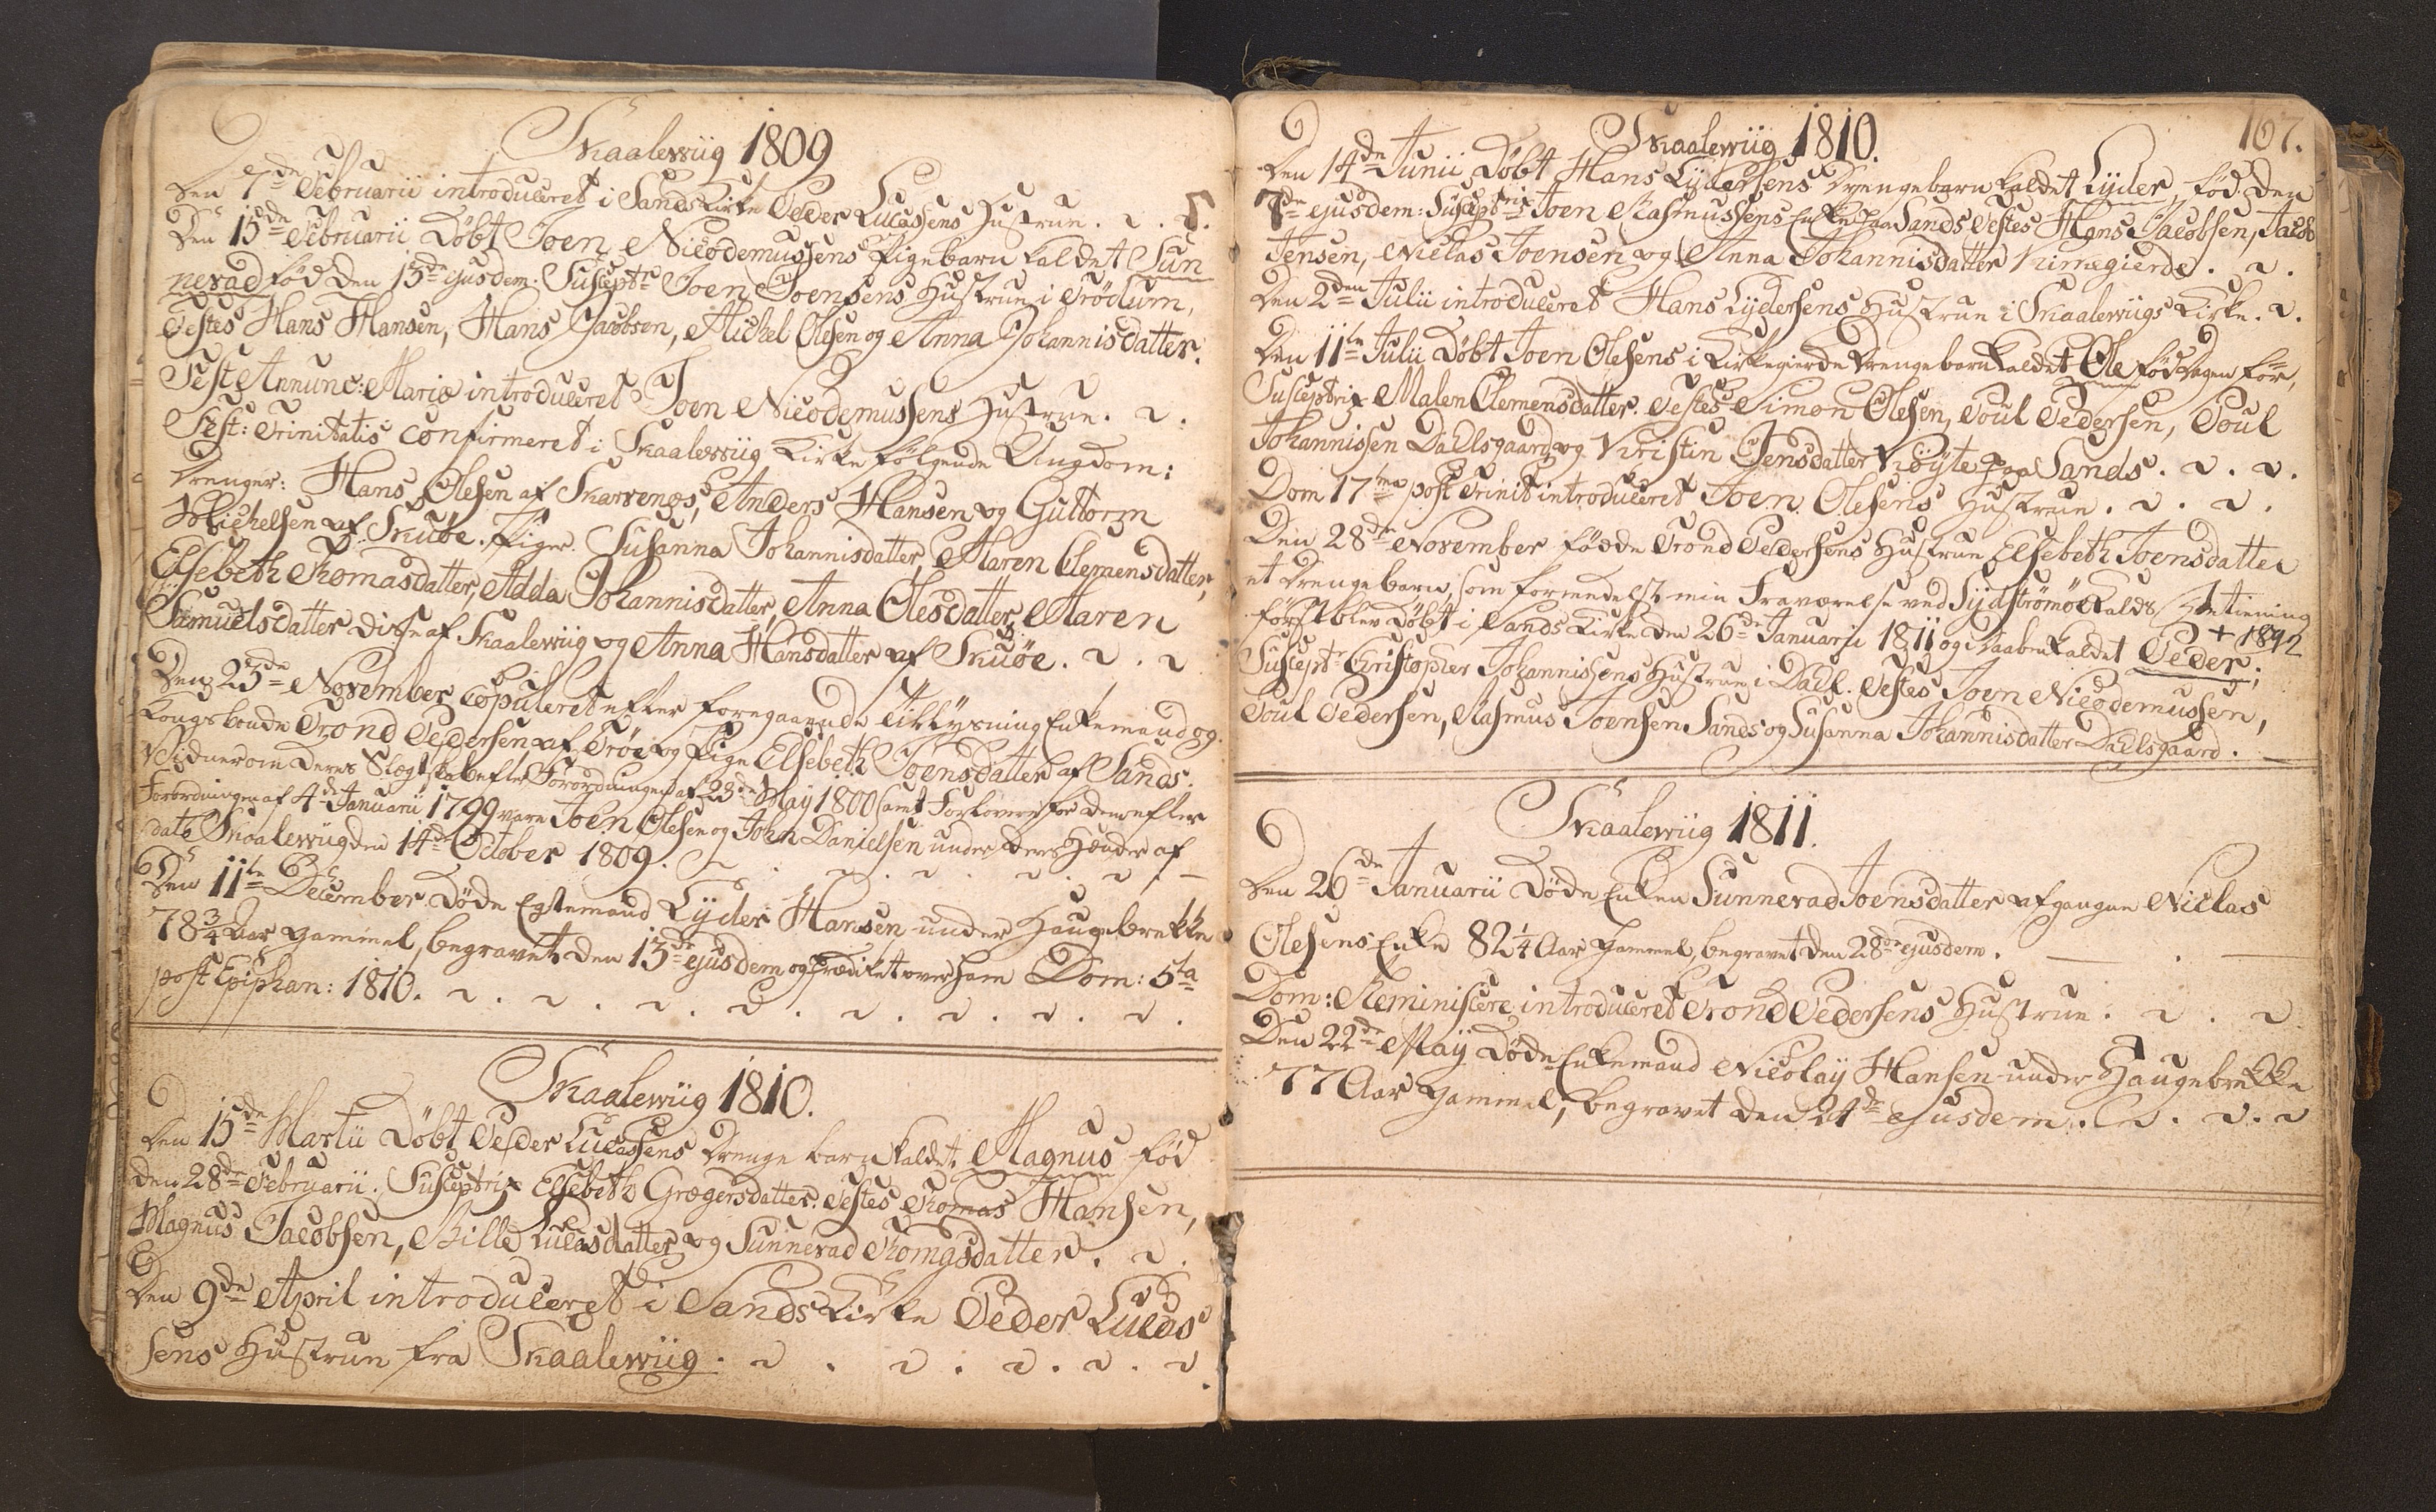 Skaalewiig 1809
Den 7de Februarii introduceret i Sands Kirke Peder Lucassens Hustrue.
Den 15de Februarii Døbt Joen Nicodemussens Pigebarn kaldet Sun
nevad fød den 13de ejusdem. Susceptr Joen Joensens Hustrue i Trödum,
Testes Hans Hansen, Hans Jacobsen, Michel Olesen og Anna Johannisdatter.
Fest Annunc: Mariæ introduceret Joen Nicodemussens Hustrue.
Fest: Trinitatis confirmeret i Skaalewiig Kirke følgende Ungdom:
Drenger: Hans Olesen af Skarvenæs, Anders Hansen og Guttorm
Michelsen af Skuöe. Piger. Susanna Johannisdatter, Maren Clemensdatter,
Elsebeth Thomasdatter, Adda Johannisdatter, Anna Olesdatter, Maren
Samuelsdatter disse af Skaalewiig og Anna Hansdatter af Skuöe.
Den 23de November Copuleret efter foregaaende Tillysning Enkemand og
Kongsbonde Trond Pedersen af Tröe og Pige Elsebeth Joensdatter af Sands.
Vidner om deres Slægtskab efter Forordningen af 23de May 1800 samt Forlovere for dem efter
Forordningen af 4de Januarii 1799 vare Joen Olesen og John Danielsen under deres Hænder af
dato Skaalewiig den 14de October 1809.
Den 11te December Døde Egtemand Lyder Hansen under Haugebrekke
78 3/4 Aar gammel, begravet den 13de ejusdem og prædiket over ham Dom: 5ta
post Epiphan: 1810.
Skaalewiig 1810.
Den 15de Martii Døbt Peder Lucassens Drengebarn kaldet Magnus fød
den 28de Februarii. Susceptrix Elsebeth Grægersdatter. Testes Thomas Hansen,
Magnus Jacobsen, Bille Lucasdatter og Sunnevad Thomasdatter.
Den 9de April introduceret i Sands Kirke Peder Lucas
sens Hustrue fra Skaalewiig.
167.
Skaalewiig 1810.
Den 14de Junii Døbt Hans Lydersens Drengebarn kaldet Lyder, fød den
7de ejusdem: Susceptrix Joen Rasmussens Enke paa Sands Testes Hans Jacobsen, Jacob
Jensen, Niclas Joensen og Anna Johannisdatter Kirregierde.
Den 2den Julii introduceret Hans Lydersens Hustrue i Skaalewiigs Kirke.
Den 11te Julii Døbt Joen Olesens i Kirkegierde Drengebarn kaldet Ole fød Dagen før,
Susceptrix Malen Clemensdatter. Testes Simon Olesen, Poul Pedersen, Poul
Johannissen Dahlsgaard og Kristin Jensdatter Krøyte paa Sands.
Dom 17ma post Trinit introduceret Joen Olesens Hustrue.
Den 28de November födde Trond Pedersens Hustrue Elsebeth Joensdatter
et Drengebarn, som formedelst min Fraværelse ved Sydströmöe Kalds Betiening
først blev Døbt i Sands Kirke den 26de Januarii 1811 og i Daaben kaldet Peder. + 1892
Susceptr Christopher Johannissens Hustrue i Dahl. Testes Joen Nicodemussen,
Poul Pedersen, Rasmus Joensen Sands og Susanna Johannisdatter Dahlsgaard.
Skaalewiig 1811.
Den 26de Januarii Døde Enken Sunnevad Joensdatter afgangne Niclas
Olesens Enke 82 1/4 Aar gammel, begravet den 28de ejusdem.
Dom: Reminiscere introduceret Trond Pedersens Hustrue.
Den 22de May Døde Enkemand Nicolay Hansen under Haugebrekke
77 Aar gammel, begravet den 24de ejusdem.